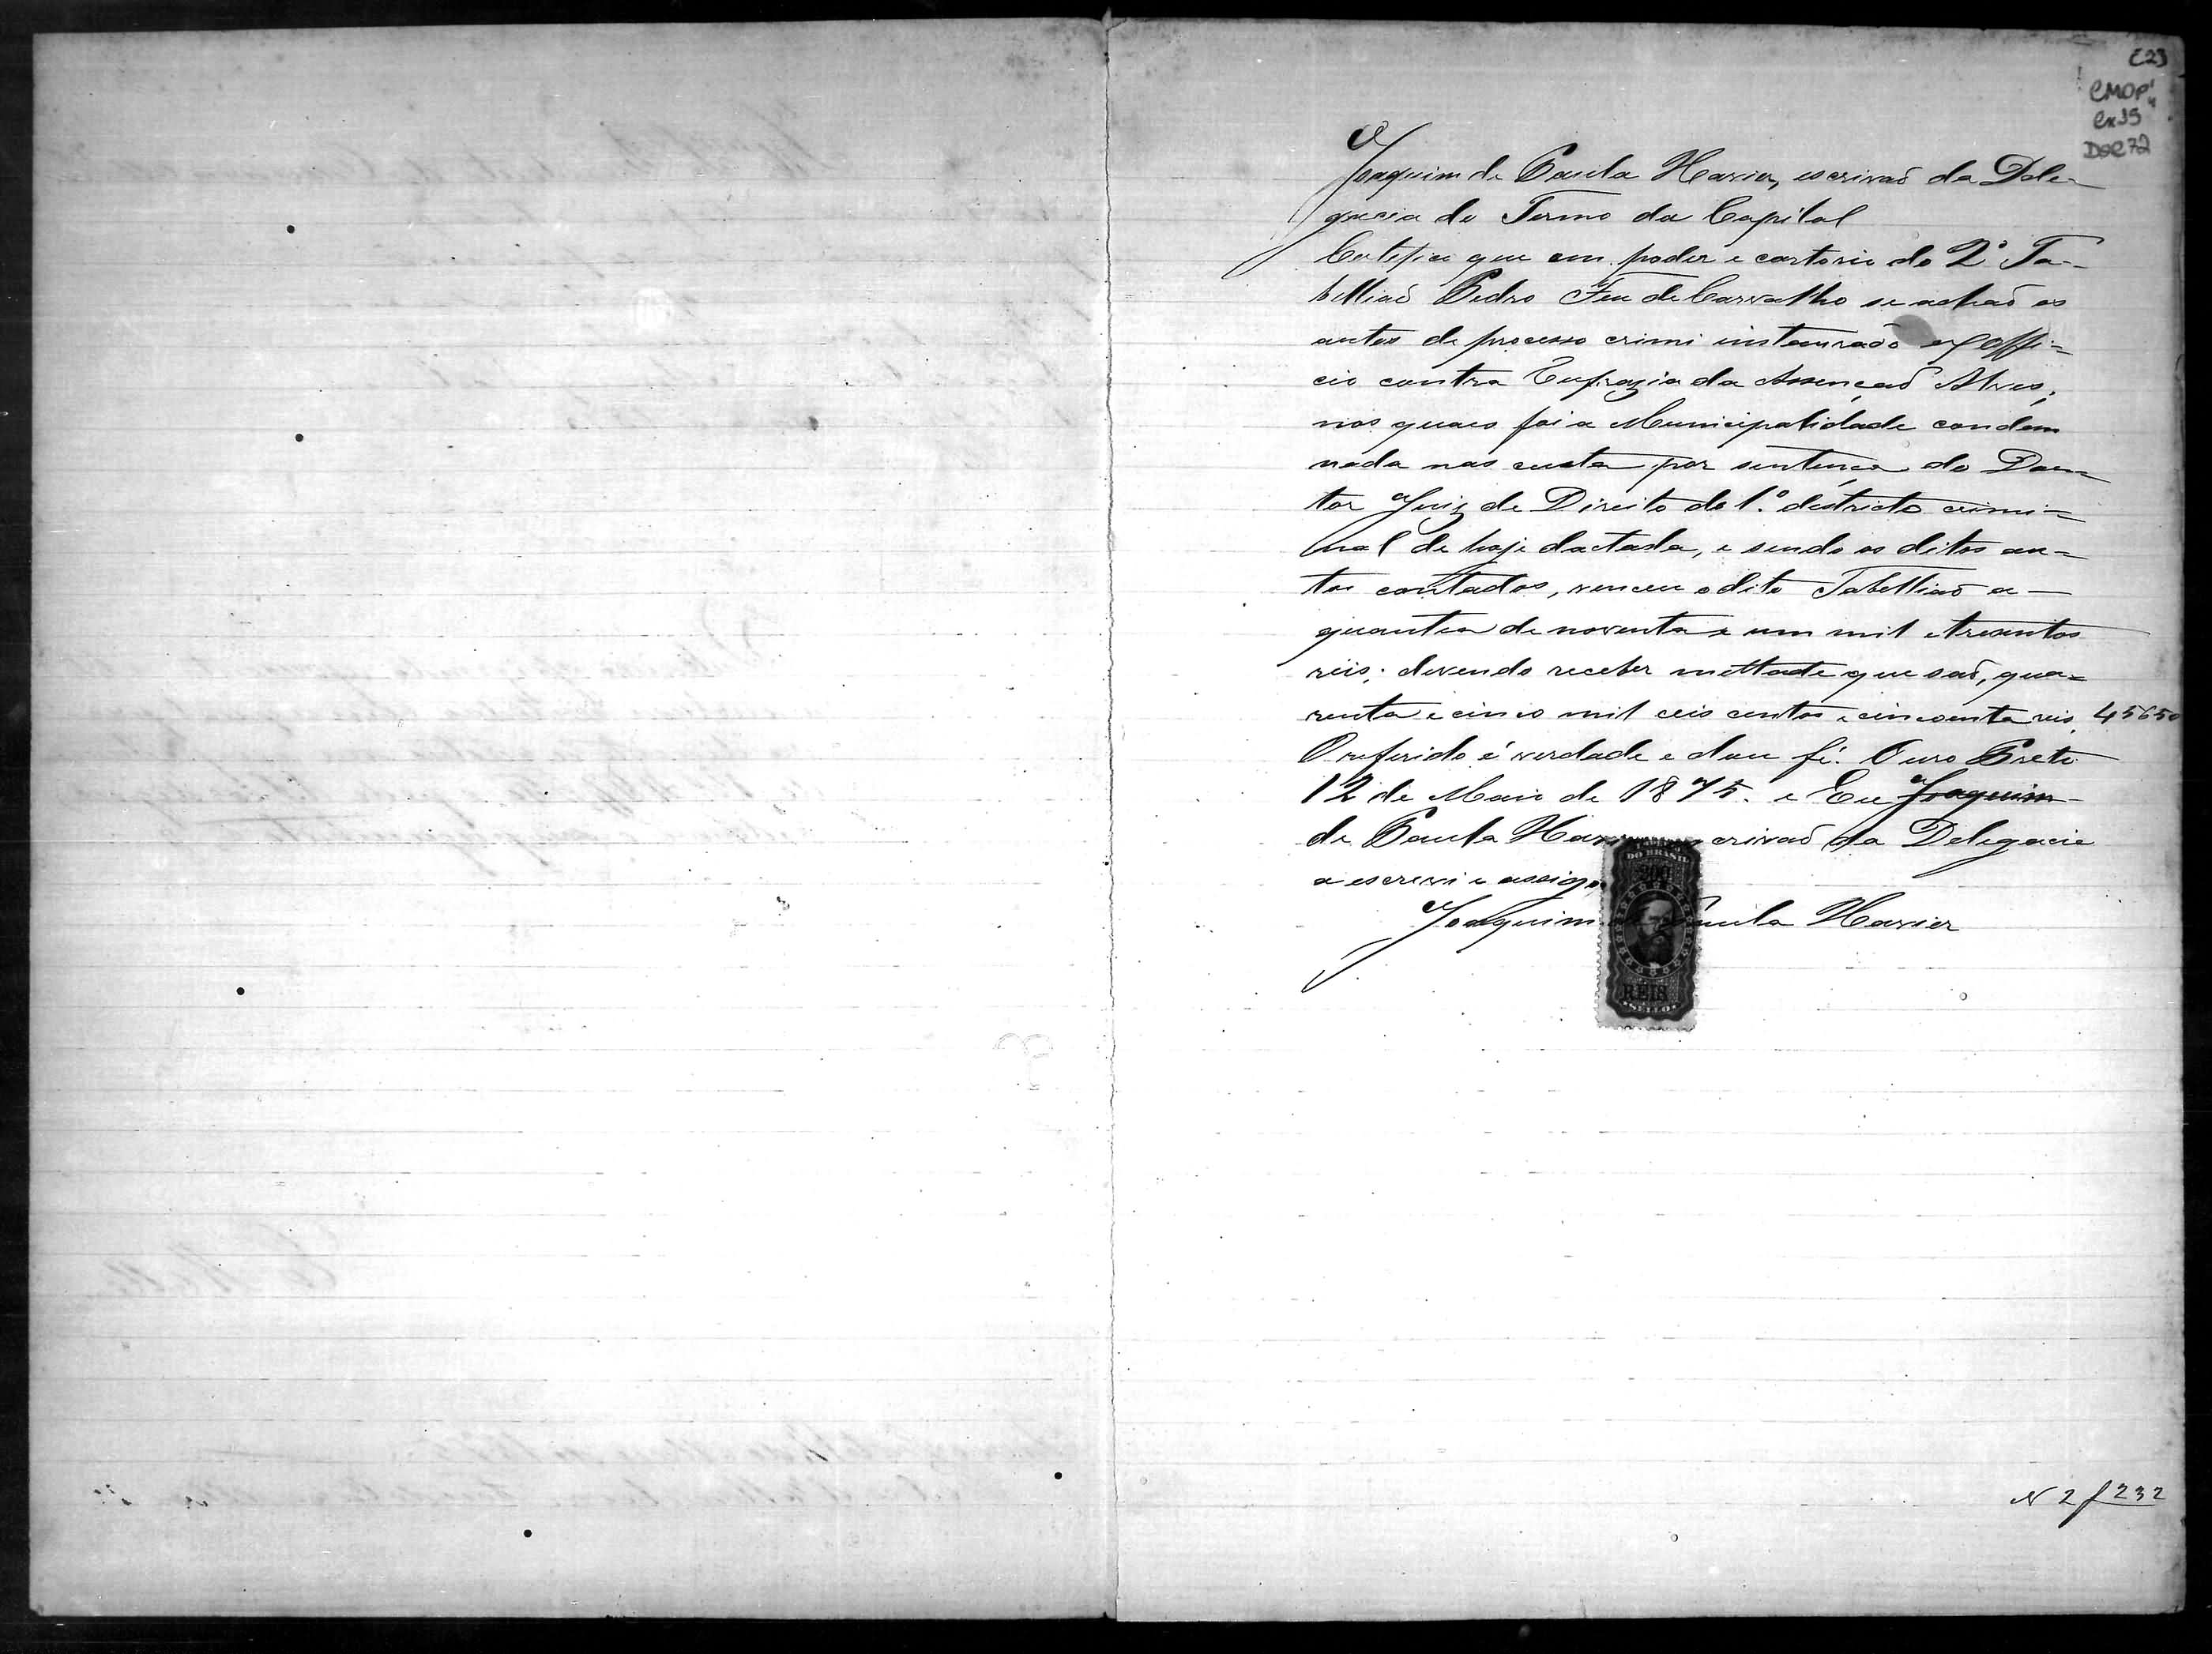 [2]
CMOP
Cx 95
Doc 72
Joaquim de Paula Xavier, escrivaõ da Dele-
gacia do Termo da Capital
Certifico que em poder e cartorio do 2º Ta-
belliaõ Pedro Feu de Carvalho se achaõ os
autos de processo crime instaurado ex offi=
cio contra Eufrazia da Assençaõ Alves,
nos quaes foi a Municipalidade condem
nada nas custa por sentença do Dou
tor Juiz de Direito do 1.º destricto crimi=
nal de hoje dactada, e sendo os ditos au=
tos contados, venceu o dito Tabelliaõ a
quantia de noventa e um mil e trezentos
reis; devendo receber mettade que saõ, qua=
renta e cinco mil ceis centos e cincoenta reis. 45650
O referido é verdade e dou fé. Ouro Preto
12 de Maio de 1875. e Eu Joaquim
de Paula crivaõ da Delegacia
a escrevi e assig
Joaquim Paula Xavier
DO BRASIL
200
REIS
SELLO
N 2 f 232